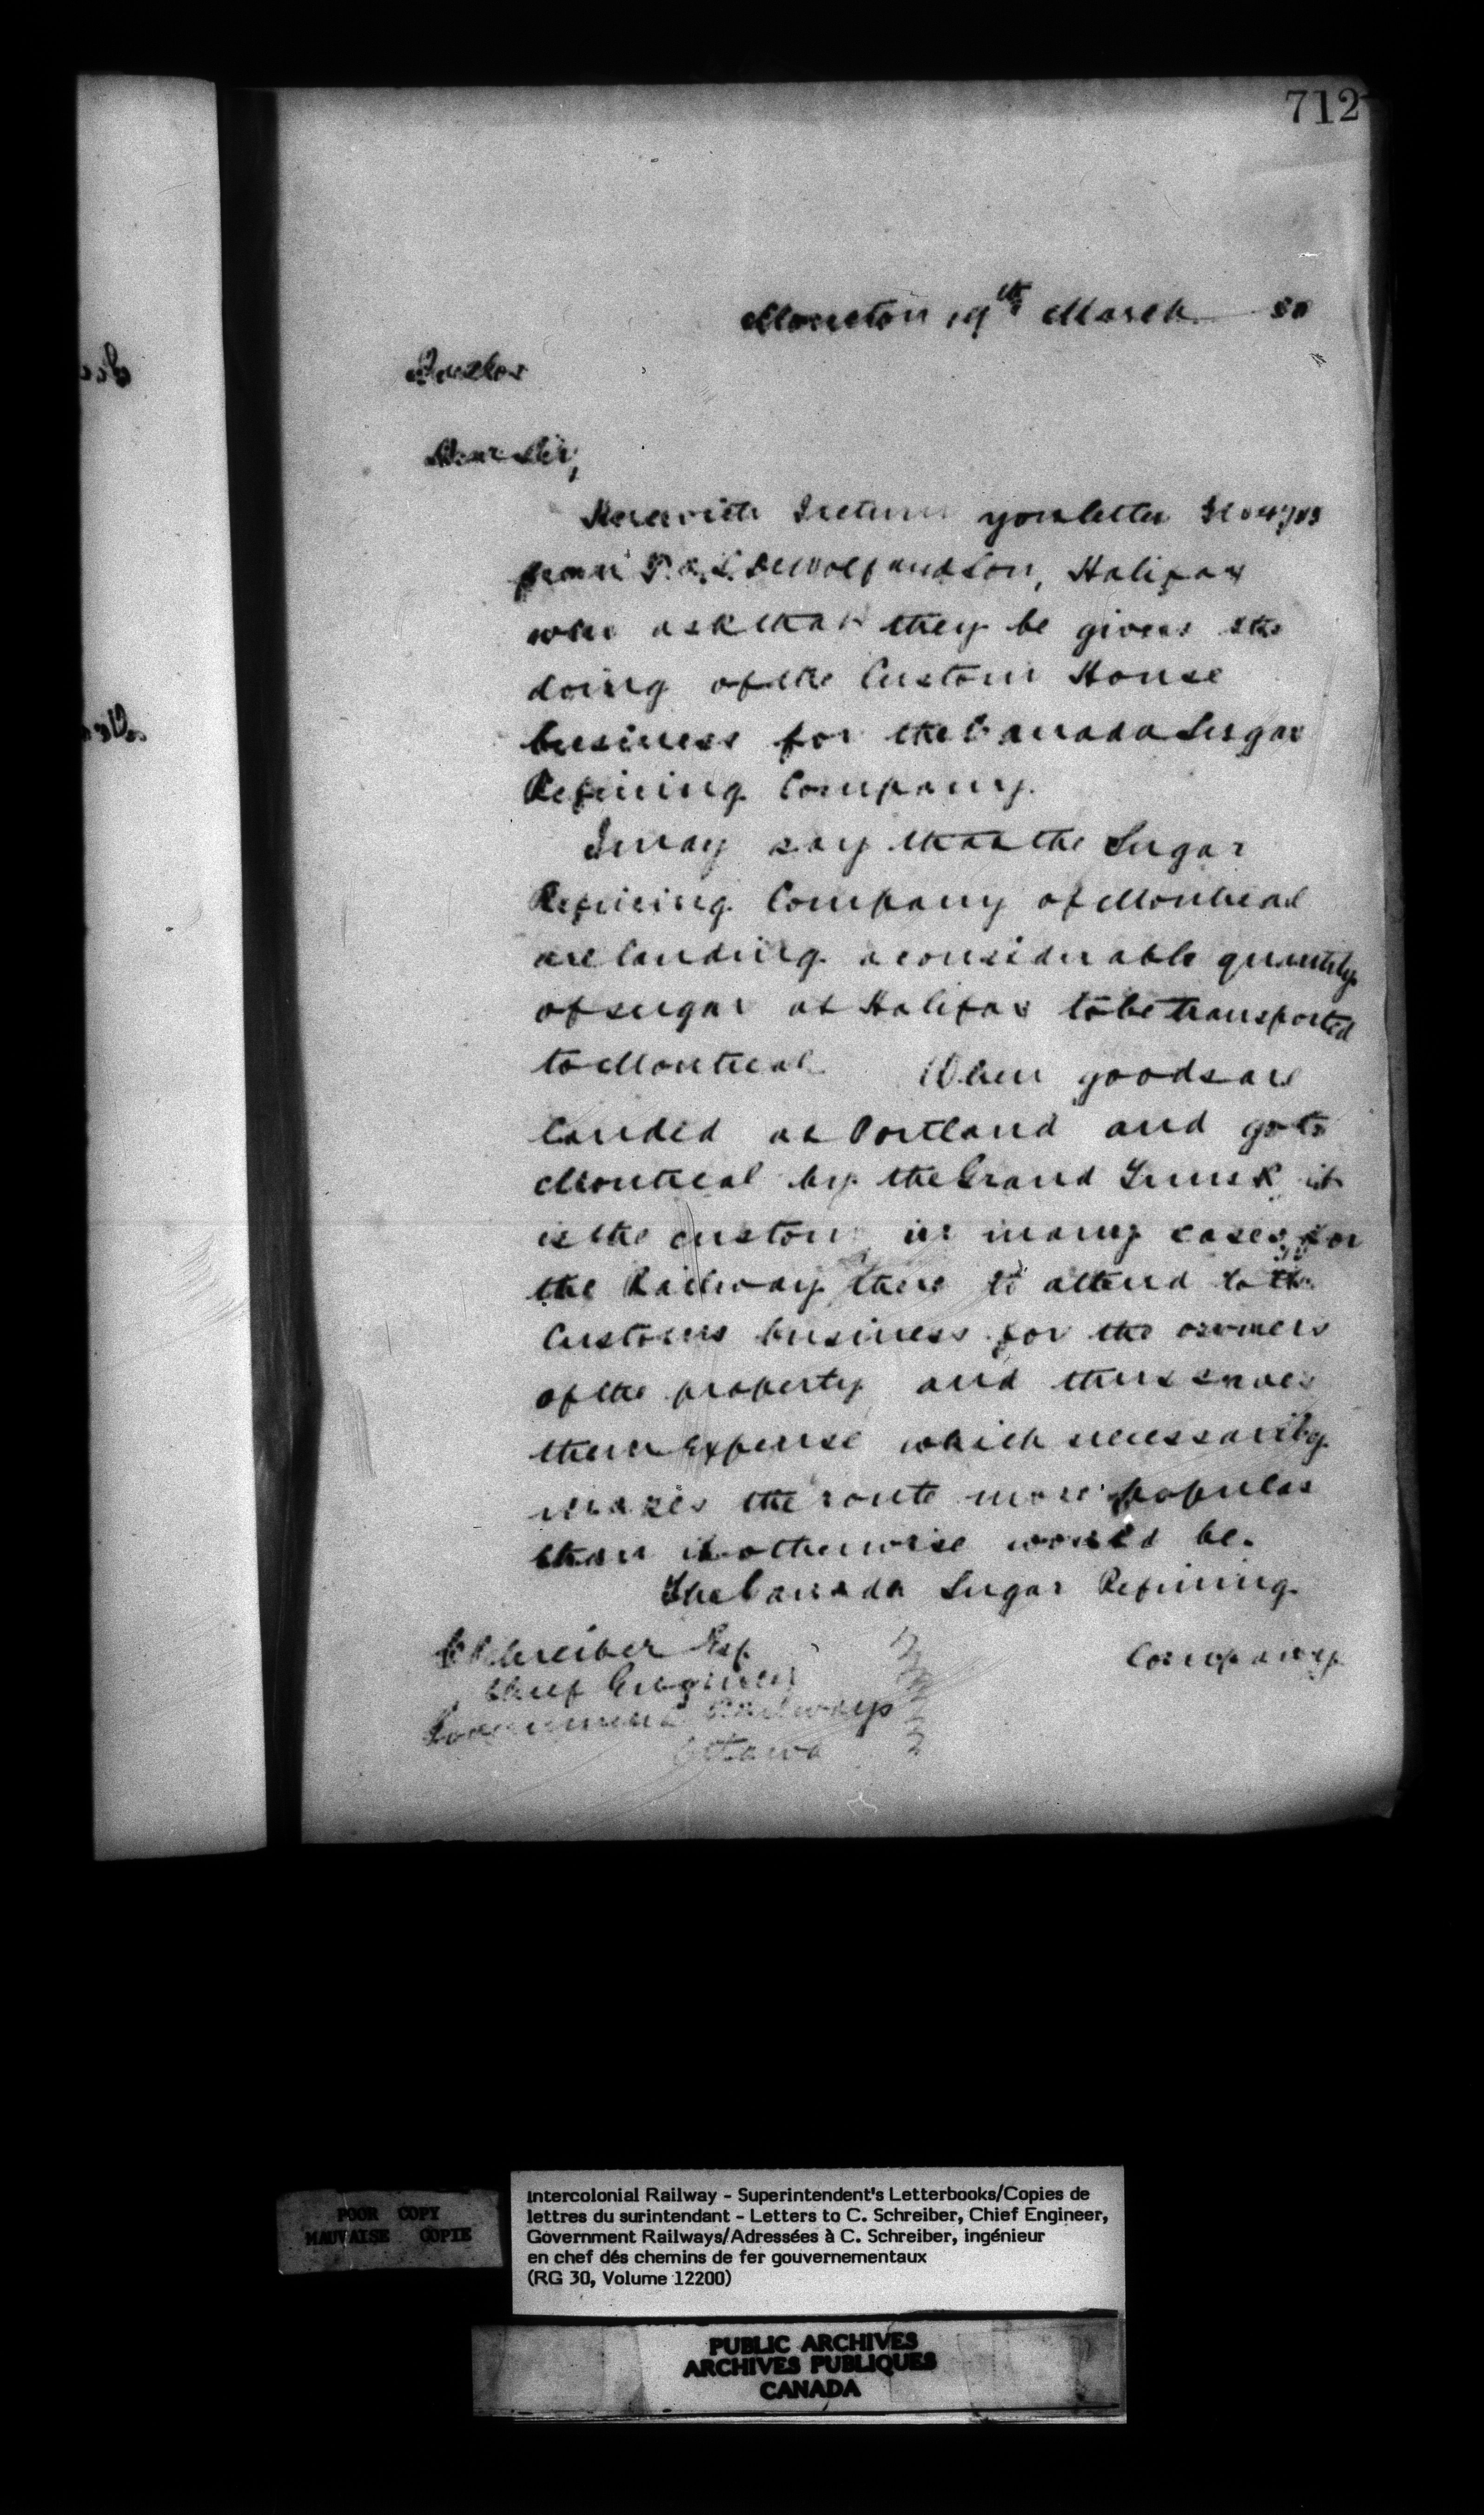 712
Moncton 19th March 80
Dear Sir,
Herewith I return you letter
from T. A. S. DeWolf and Son, Halifax
who ask that they be given the
doing of the Custom House
business for the Canada Sugar
Refining Company.
I may say that the Sugar
Refining Company of Montreal
are landing a considerable quantity
of sugar at Halifax to be transported
to Montreal. When goods are
landed at Portland and go to
Montreal by the Grand Trunk it
is the custom in many cases for
the Railway there to attend to the
Customs business for the owners
of the property and thus saves
them expense which necessarily
makes the route more popular
than it otherwise would be.
The Canada Sugar Refining
Company
C Schreiber Esq.
Chief Engineer
Government Railways
Ottawa
POOR COPY
MAUVAISE COPIE
Intercolonial Railway - Superintendent's Letterbooks/Copies de
lettres du surintendant - Letters to C. Schreiber, Chief Engineer,
Government Railways/Adressées à C. Schreiber, ingénieur
en chef dés chemins de fer gouvernementaux
(RG 30, Volume 12200)
PUBLIC ARCHIVES
ARCHIVES PUBLIQUES
CANADA